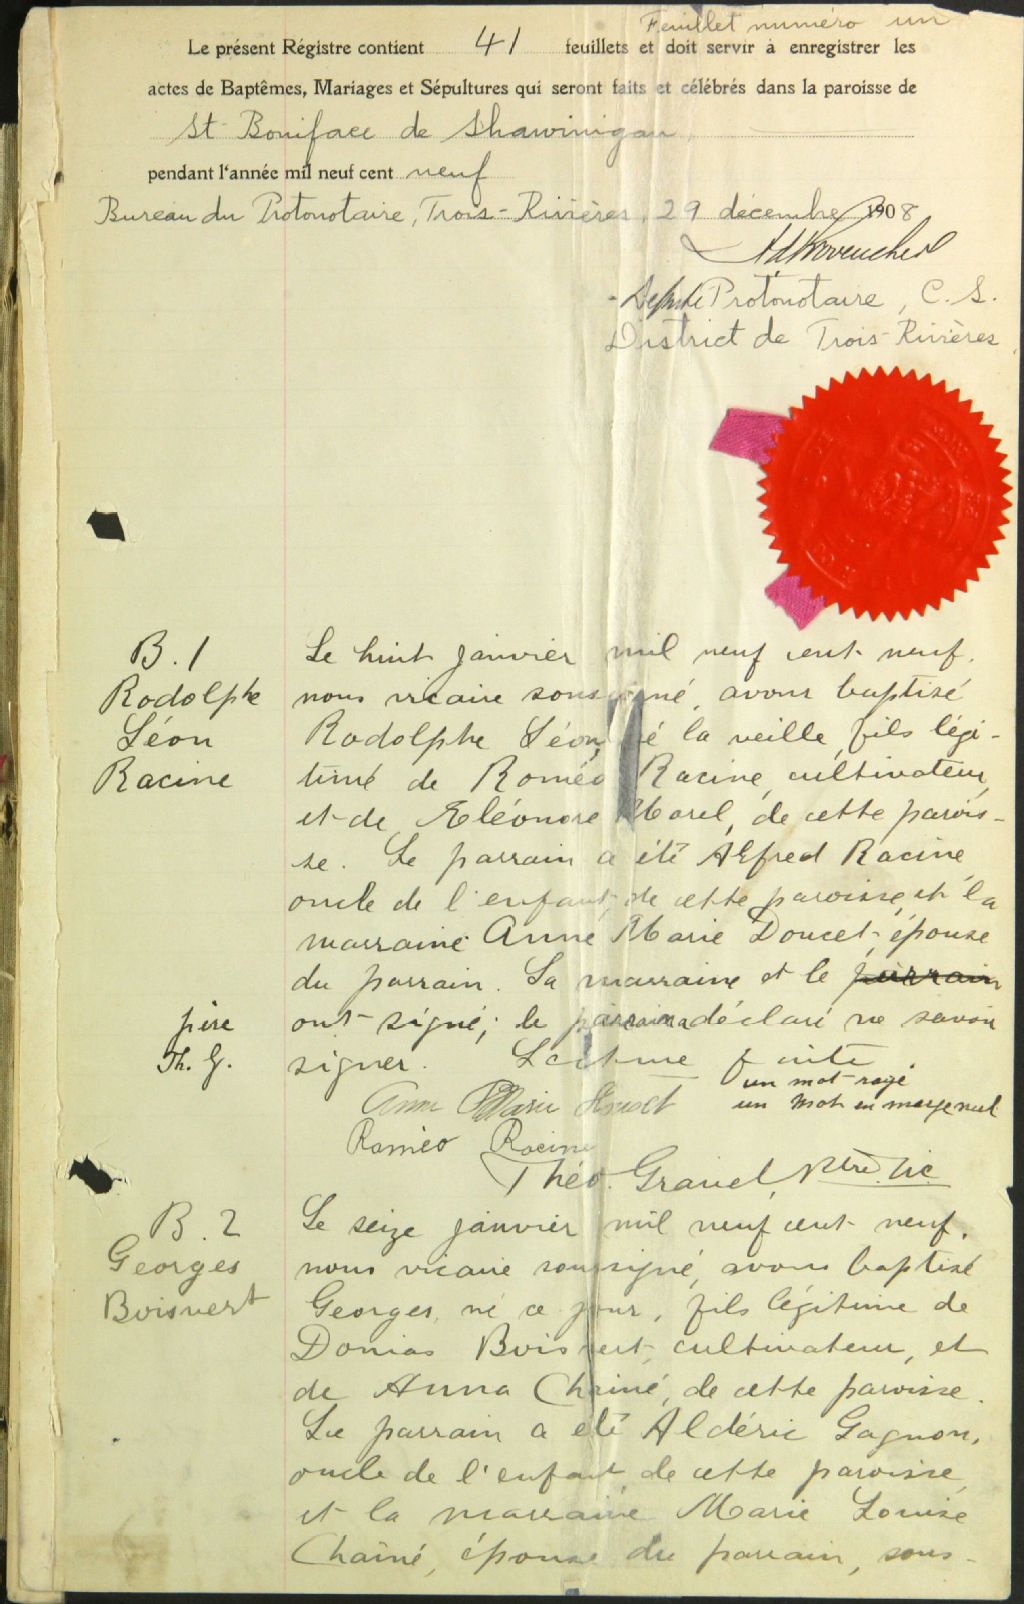 Feuillet numéro un
Le présent Régistre contient 41 feuillets et doit servir à enregistrer les
actes de Baptêmes, Mariages et Sépultures qui seront faits et célébrés dans la paroisse de
St Boniface de Shawinigan,
pendant l'année mil neuf cent neuf
Bureau du Protonotaire, Trois-Rivières, 29 décembre 1908
Député Protonotaire, C. S.
District de Trois-Rivières
B. 1
Rodolphe
Léon
Racine
Le huit janvier mil neuf cent neuf,
nous vicaire soussigné, avons baptisé
Rodolphe Léon, né la veille, fils légi-
time de Roméo Racine, cultivateur,
et de Eléonore Morel, de cette parois-
se. Le parrain a été Alfred Racine,
oncle de l'enfant, de cette paroisse, et la
marraine Anne Marie Doucet, épouse
du parrain. La marraine et le parrain
père
Th. G.
ont signé; le parrain a déclaré ne savoir
signer. Lecture faite
un mot rayé
un mot en marge nul
Anna Marie Doucet
Roméo Racine
Théo. Gravel, Ptre. Vic
B. 2
Georges
Boisvert
Le seize janvier mil neuf cent neuf,
nous vicaire soussigné, avons baptisé
Georges, né ce jour, fils légitime de
Donias Boisvert, cultivateur, et
de Anna Chaîné, de cette paroisse.
Le parrain a été Aldéric Gagnon,
oncle de l'enfant, de cette paroisse,
et la marraine Marie Louise
Chaîné, épouse du parrain, sous-